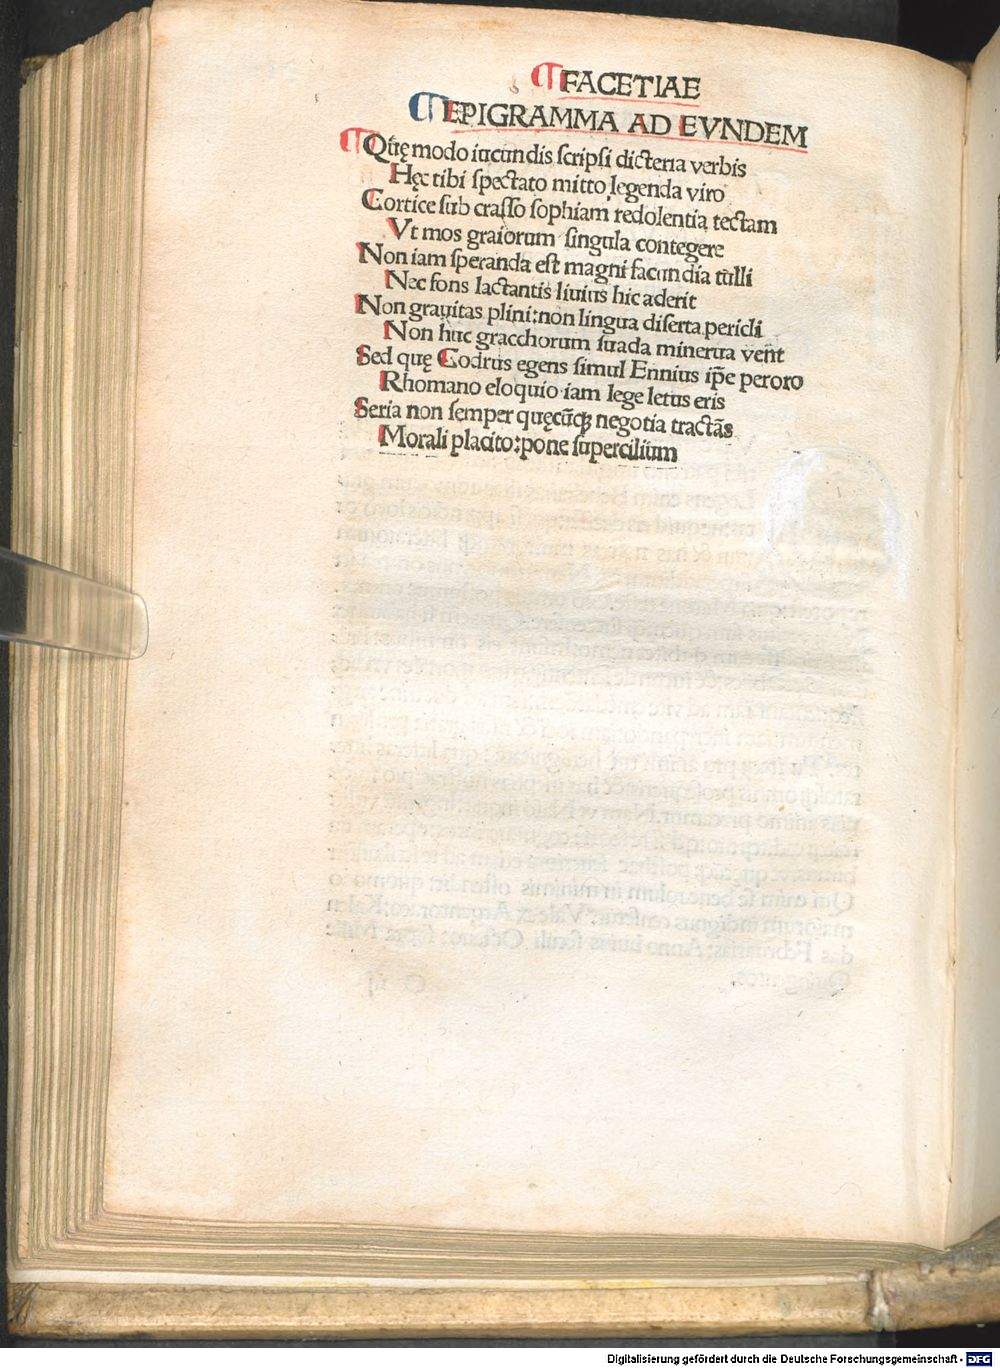 FACETIAE
EPIGRAMMA AD EVNDEM
modo iucundis scripsi dicteria verbis
Hęc tibi spectato mitto legenda viro
Cortice sub crasso sophiam redolentia tectam
Vt mos graiorum singula contegere
Non iam speranda est magni facundia tulli
Nec fons lactantis liuius hic aderit
Non grauitas plini: non lingua diserta pericli
Non huc gracchorum suada minerua venit
Sed quę Codrus egens simul Ennius ip̄e peroro
Rhomano eloquio iam lege letus eris
Seria non semper quęcūq; negotia tractās
Morali placito: pone supercilium
Digitalisierung gefördert durch die Deutsche Forschungsgemeinschaft - DFG